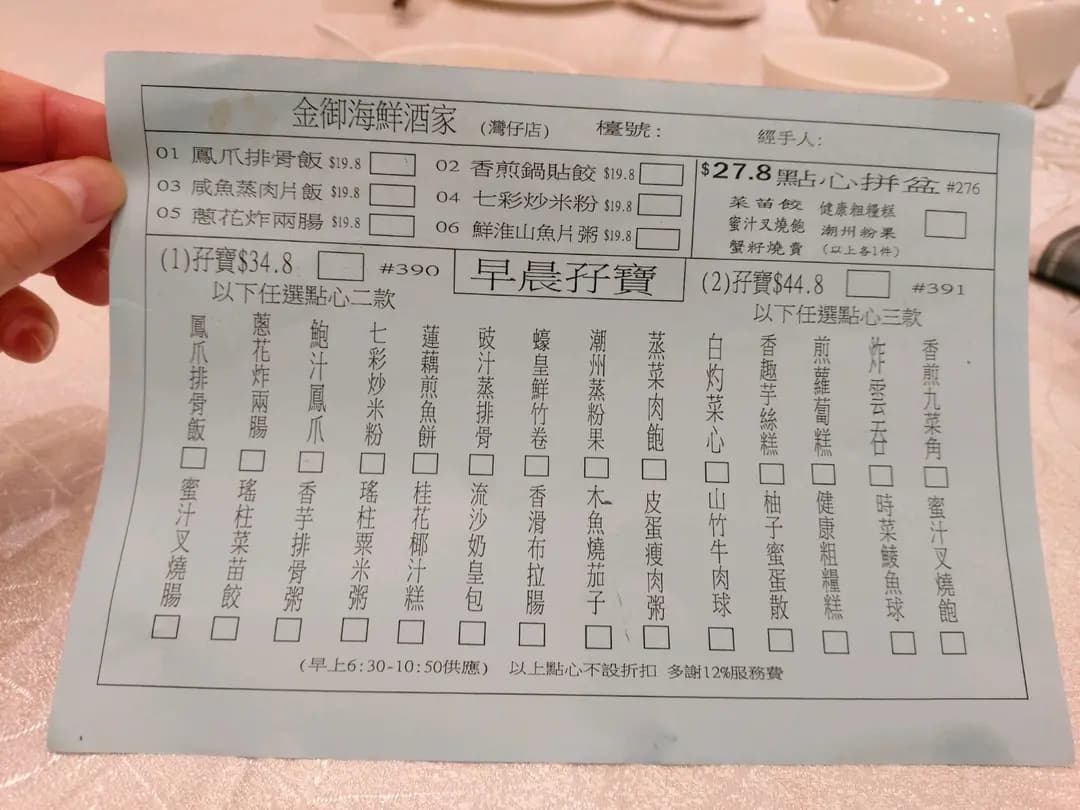 金御海鮮酒家 (灣仔店) 檯號: 經手人:
01 鳳爪排骨飯 $19.8
02 香煎鍋貼餃 $19.8
03 咸魚蒸肉片飯 $19.8
04 七彩炒米粉 $19.8
05 蔥花炸兩腸 $19.8
06 鮮淮山魚片粥 $19.8
$27.8 點心拼盆 #276
菜苗餃 健康粗糧糕
蜜汁叉燒飽 潮州粉果
蟹籽燒賣 (以上各1件)
(1)孖寶$34.8 #390
以下任選點心二款
早晨孖寶
(2)孖寶$44.8 #391
以下任選點心三款
鳳爪排骨飯
蔥花炸兩腸
鮑汁鳳爪
七彩炒米粉
蓮藕煎魚餅
豉汁蒸排骨
蠔皇鮮竹卷
潮州蒸粉果
蒸菜肉飽
白灼菜心
香趣芋絲糕
煎蘿蔔糕
炸雲吞
香煎九菜角
蜜汁叉燒腸
瑤柱菜苗餃
香芋排骨粥
瑤柱粟米粥
桂花椰汁糕
流沙奶皇包
香滑布拉腸
木魚燒茄子
皮蛋瘦肉粥
山竹牛肉球
柚子蜜蛋散
健康粗糧糕
時菜鯪魚球
蜜汁叉燒飽
(早上6:30-10:50供應) 以上點心不設折扣 多謝12%服務費